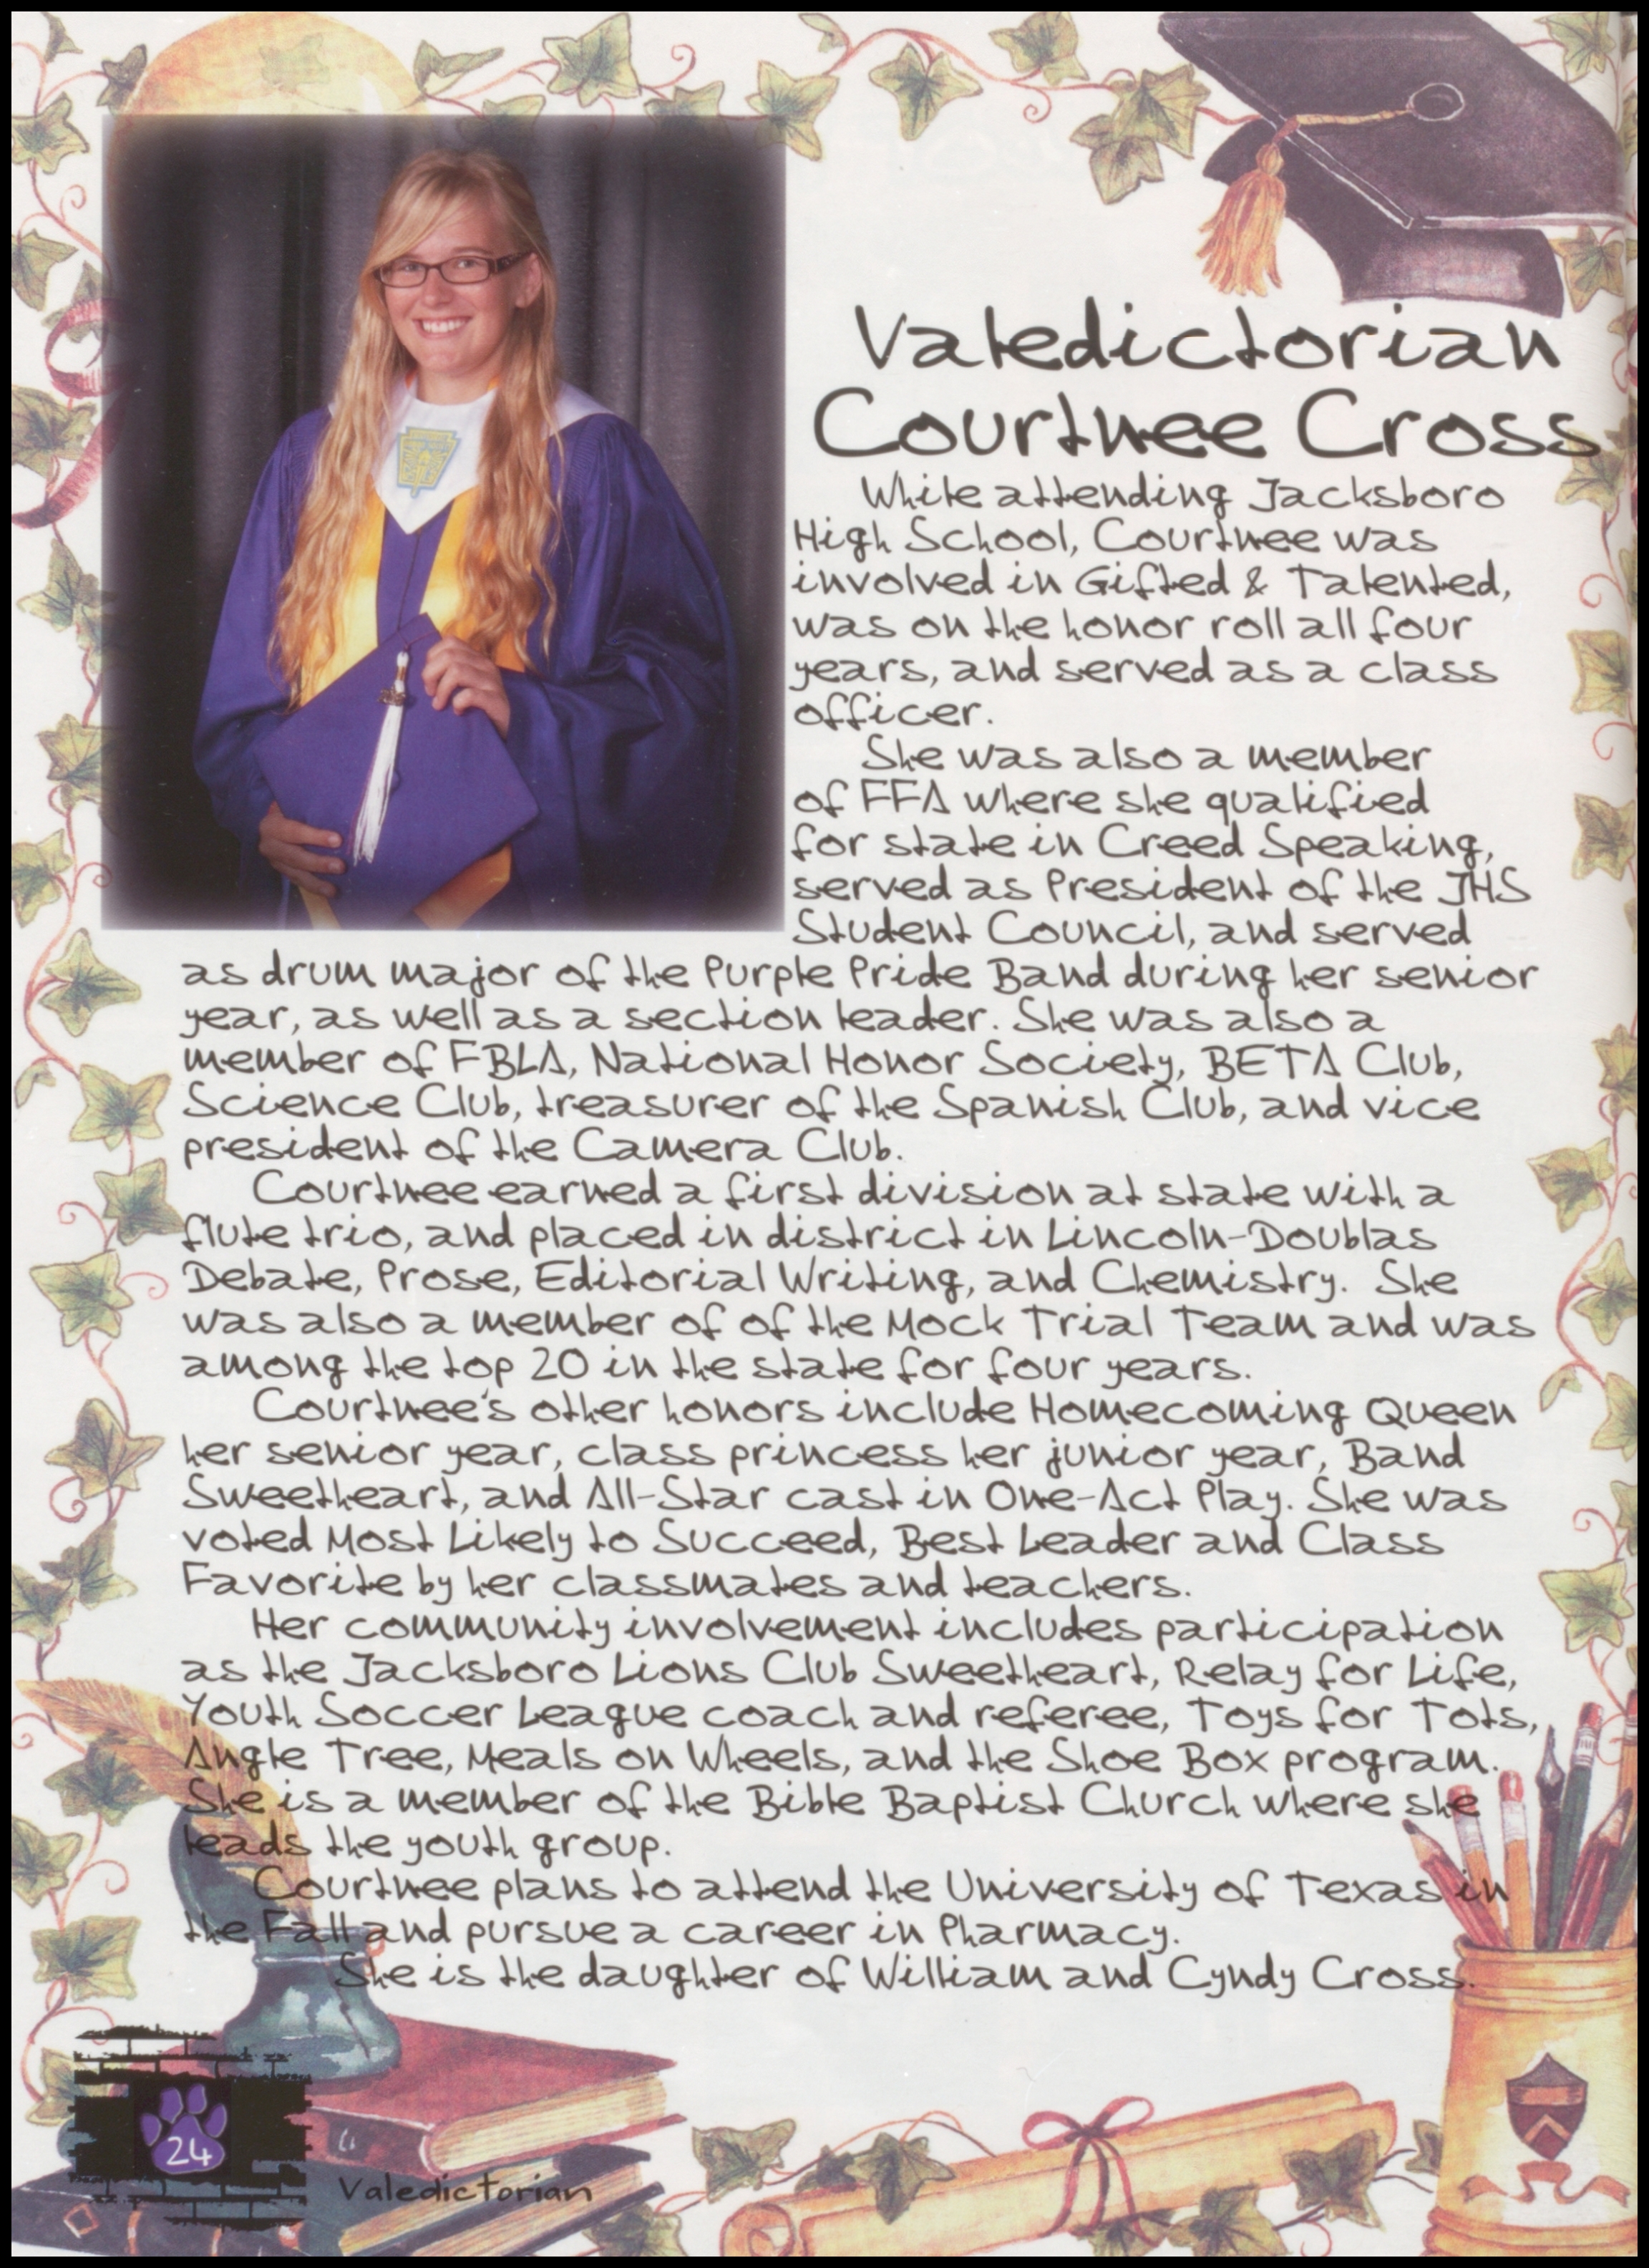 Valedictorian
Courtnee Cross
While attending Jacksboro
High School, Courtnee was
involved in Gifted & Talented,
was on the honor roll all four
years, and served as a class
officer.
She was also a member
of FFA where she qualified
for state in Creed Speaking,
served as President of the JHS
Student Council, and served
as drum major of the Purple Pride Band during her senior
year, as well as a section leader. She was also a
member of FBLA, National Honor Society, BETA Club,
Science Club, treasurer of the Spanish Club, and vice
president of the Camera Club.
Courtnee earned a first division at state with a
flute trio, and placed in district in Lincoln-Doublas
Debate, Prose, Editorial Writing, and Chemistry. She
was also a member of of the Mock Trial Team and was
among the top 20 in the state for four years.
Courtnee's other honors include Homecoming Queen
her senior year, class princess her junior year, Band
Sweetheart, and All-Star cast in One-Act Play. She was
voted Most Likely to Succeed, Best Leader and Class
Favorite by her classmates and teachers.
Her community involvement includes participation
as the Jacksboro Lions Club Sweetheart, Relay for Life,
Youth Soccer League coach and referee, Toys for Tots,
Angle Tree, Meals on Wheels, and the Shoe Box program.
She is a member of the Bible Baptist Church where she
leads the youth group.
Courtnee plans to attend the University of Texas in
the Fall and pursue a career in Pharmacy.
She is the daughter of William and Cyndy Cross.
24
Valedictorian